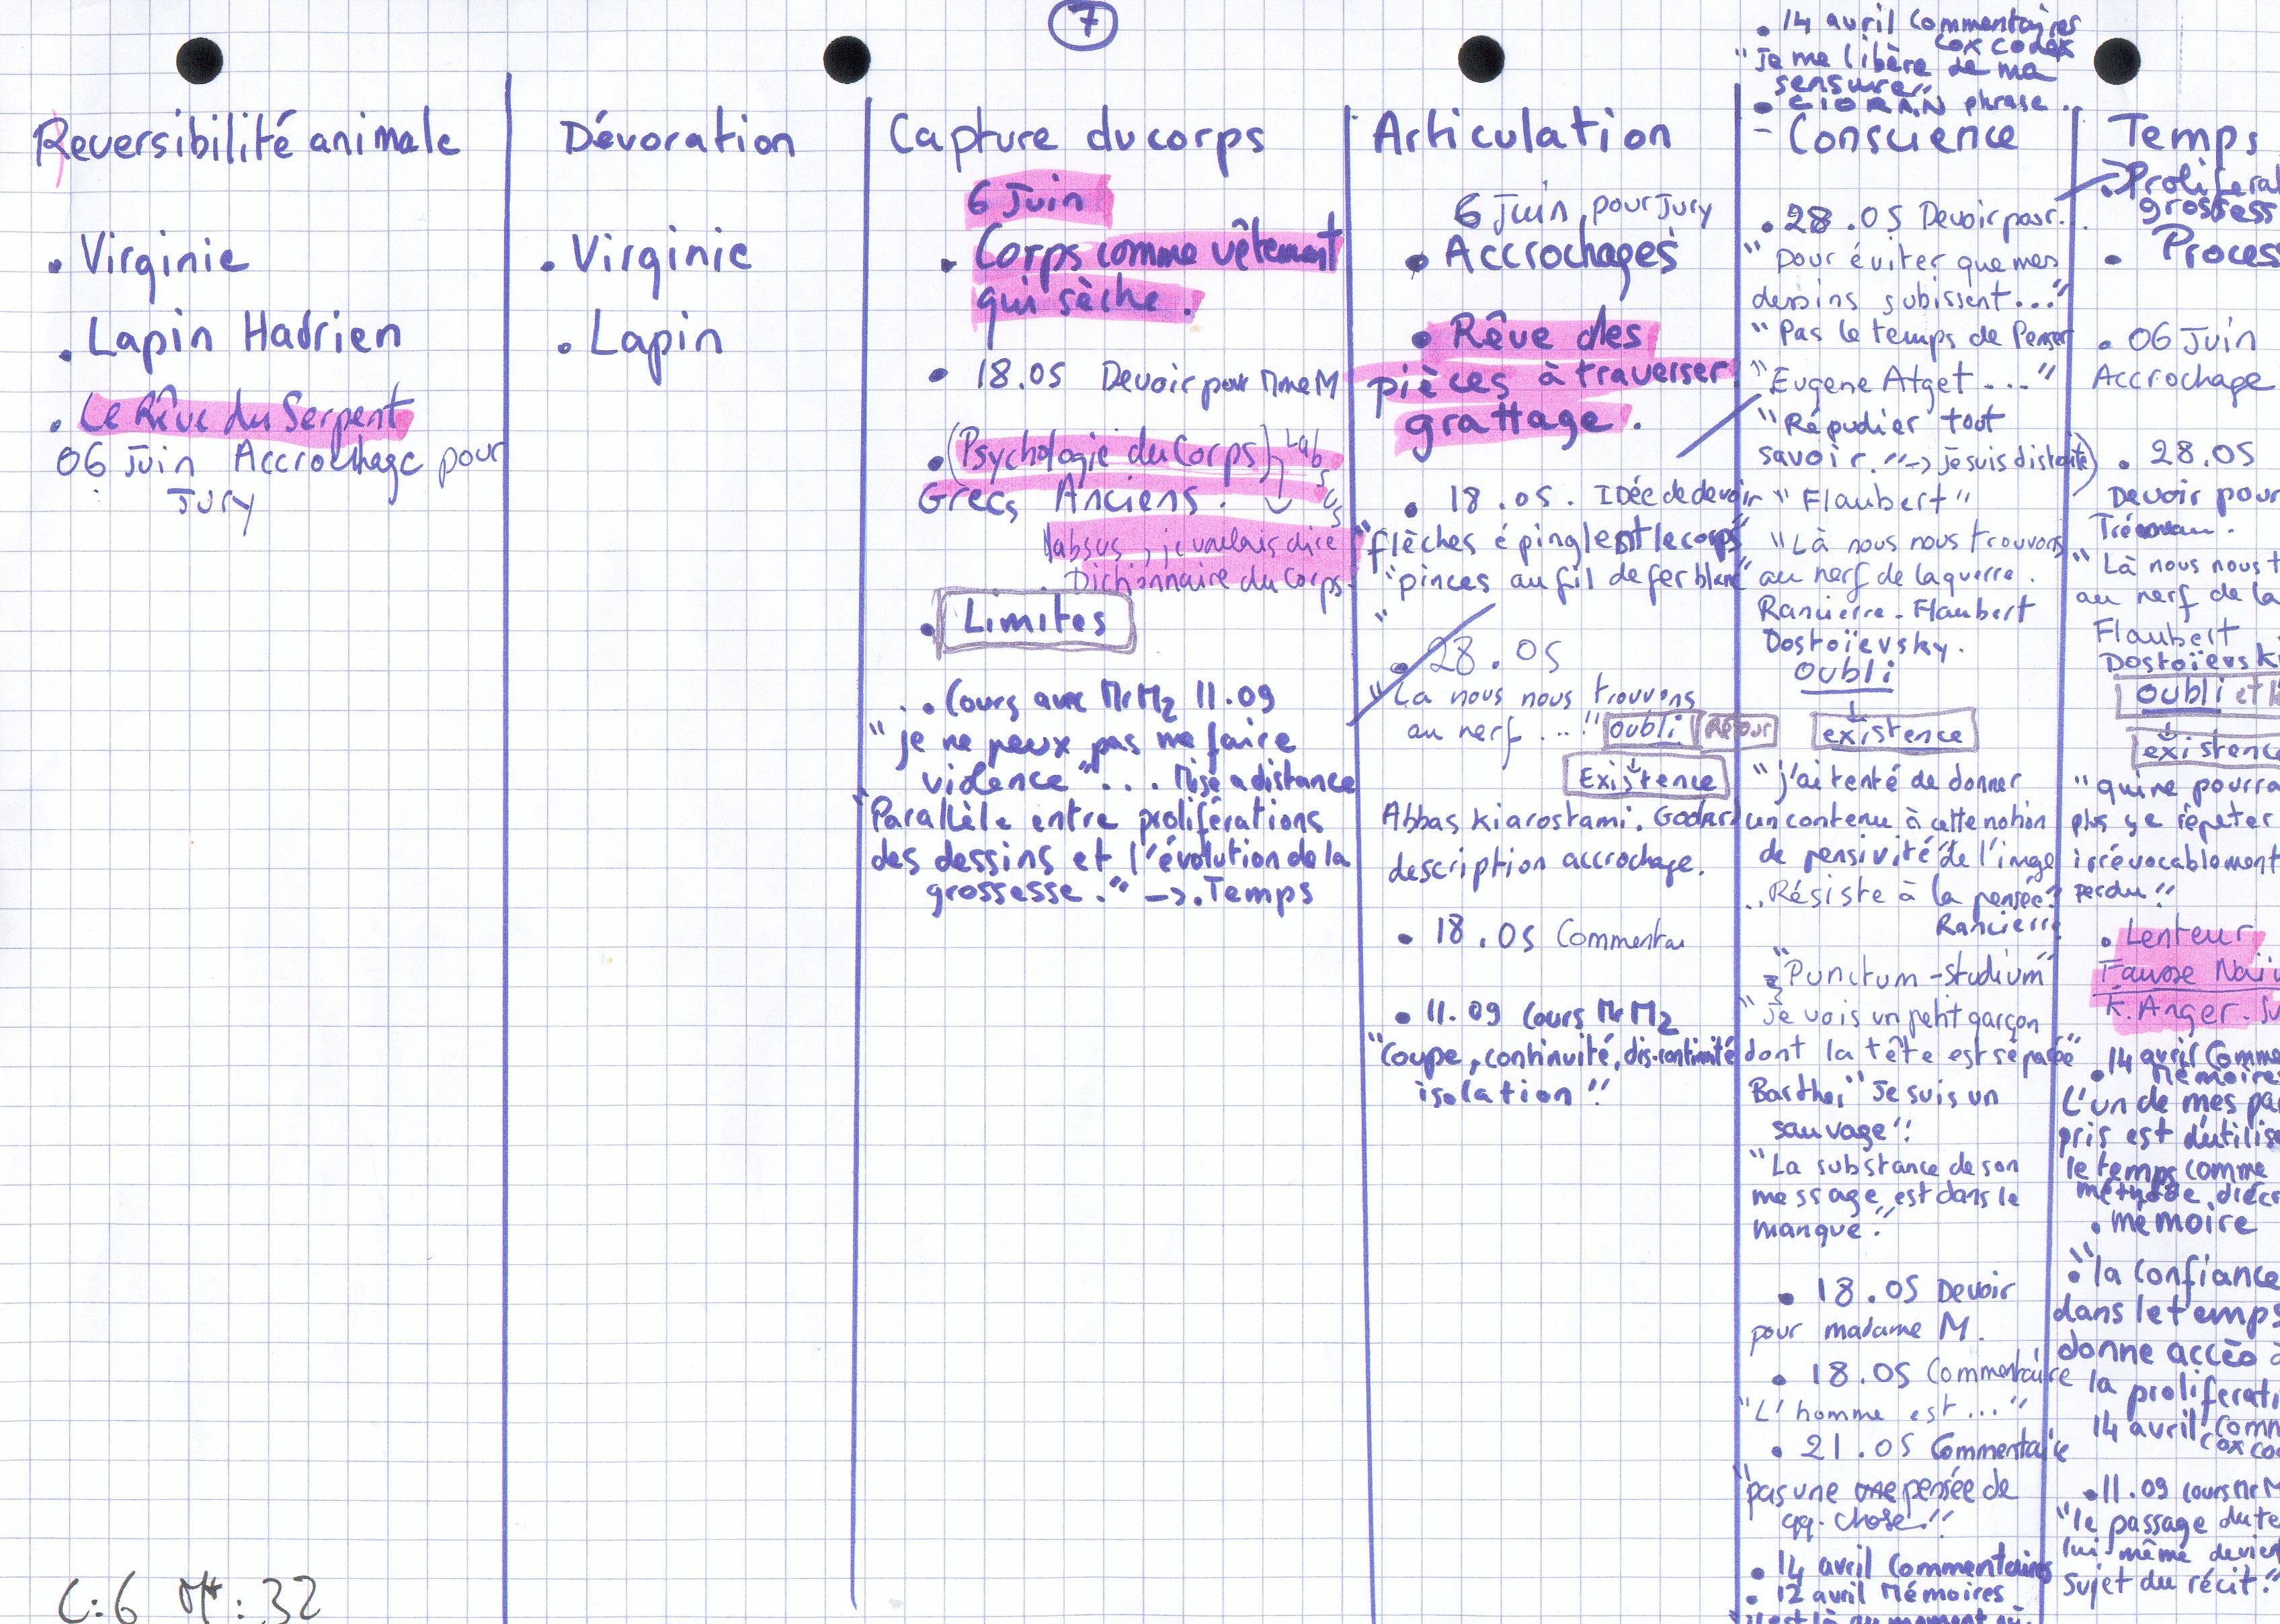 7
Reversibilité animale
. Virginie
. Lapin Hadrien
. Le Rêve du Serpent
06 Juin Accrochage pour
Jury
C:6
: 32
Dévoration
. Virginie
. Lapin
Capture du corps
6 Juin
. Corps comme vêtement
qui sèche.
. 18.05 Devoir pour Mme M
. (Psychologie du Corps) Labsus
Grecs Anciens.
labsus, je voulais dire
. Dictionnaire du Corps.
. Limites
. Cours avec Mr M2 11.09
"je ne peux pas me faire
violence"... Mise a distance
"Parallèle entre prolifèrations
des dessins et l'évolution de la
grossesse." -> .Temps
Articulation
6 Juin pour Jury
. Accrochages
. Rêve des
pièces à traverser
grattage.
. 18.05. IDée de devoir
"flèches épinglent le corps"
"pinces au fil de fer blanc"
"
. 28.05
"Là nous nous trouvons
au nerf ..." oubli Retour
Existence
Abbas Kiarostami. Godard
description accrochage.
. 18.05 Commentai
. 11.09 Cours Mr M2
"Coupe, continuité, dis-continuité
isolation"
. 14 avril Commentaires
Cox codex
"Je me libère de ma
sensurer"
. CIORAN phrase.
- Conscience
. 28.05 Devoir pour...
"pour éviter que mes
dessins subissent..."
"Pas le temps de Penser
"Eugene Atget ..."
"Répudier tout
savoir." -> je suis distraite)
"Flaubert"
"Là nous nous trouvons
au nerf de la guerre.
Rancierre - Flaubert
Dostoïevsky.
oubli
existence
"j'ai tenté de donner
un contenu à cette notion
de pensivité de l'image
..Résiste à la pensée"
Rancierre
"Punctum - studium"
"Je vois un petit garçon
dont la tête est séparée"
Barthes "Je suis un
sauvage"
"La substance de son
message est dans le
manque."
. 18.05 Devoir
pour madame M.
. 18.05 Commentaire
"L'homme est..."
. 21.05 Commentaire
"pas une une pensée de
qq. chose"
. 14 avril Commentaires
. 12 avril Mémoires
Temps
. Proliferat
grossess
. Process
. 06 Juin
Accrochage
. 28.05
Devoir pour
"Là nous nous t
au nerf de la
Flaubert
Dostoïevsk
oubli et
existence
"qui ne pourra
plus se répeter
irrévocablement
perdu"
. Lenteur
Fausse Naïv
K. Anger.
. 14 avril Comme
Mémoires
L'un de mes par
pris est d'utilise
le temps comme
méthode d'écr
. memoire
". la confiance
dans le temps
donne accès à
la proliferati
14 avril Comm
Cox cod
. 11.09 cours Mr M
"le passage du te
lui même devien
sujet du récit."